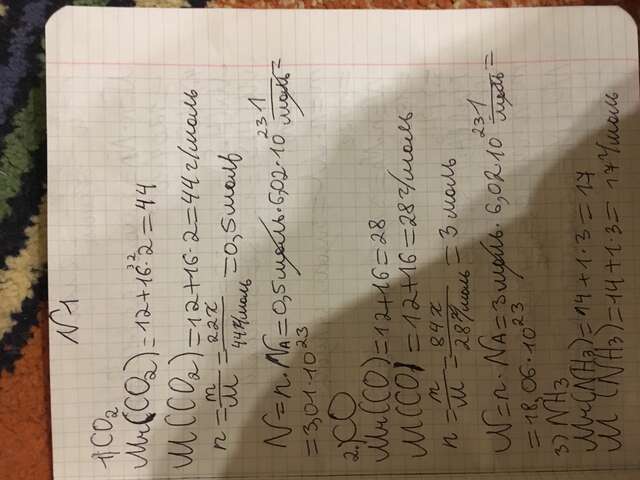 N1
1) CO₂
Mr(CO₂)=12+16·2=44
32
M(CO₂)=12+16·2=44г/моль
n = m/M = 22г/44г/моль =0,5моль
N=n·NA=0,5моль·6,02·10²³ 1/моль=
=3,01·10²³
2.)CO
Mr(CO)=12+16=28
M(CO) =12+16=28г/моль
n = m/M = 84г/28г/моль = 3 моль
N=n·NA=3моль·6,02·10²³ 1/моль=
=18,06·10²³
3) NH₃
Mr(NH₃)=14+1·3=17
M (NH₃)=14+1·3= 17г/моль